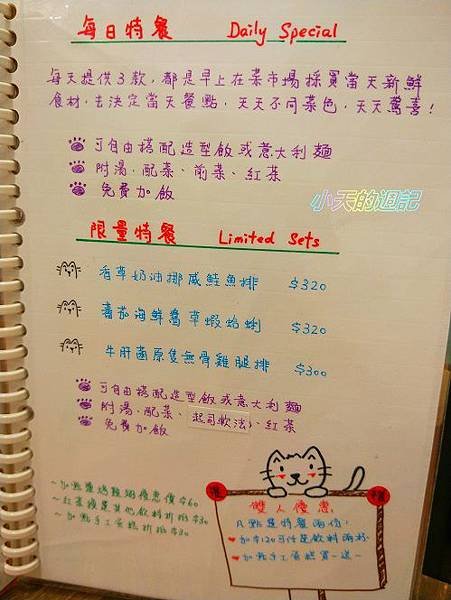 每日特餐 Daily Special
每天提供3款,都是早上在菜市場採買當天新鮮
食材,去決定當天餐點,天天不同菜色,天天驚喜!
可自由搭配造型飯或意大利麵
附湯.配菜.前菜.紅茶
免費加飯
小天的週記
限量特餐 Limited Sets
香草奶油挪威鮭魚排 $320
番茄海鮮醬草蝦蛤蜊 $320
牛肝菌原隻無骨雞腿排 $300
可自由搭配造型飯或意大利麵
附湯.配菜、起司軟法、紅茶
免費加飯
~加點 烤雞翅優惠價$60
~紅茶換其他飲料折抵$30
~加點手工蛋糕折抵$30
雙人優惠
凡點選特餐兩份,
加$120可任選飲料兩杯
加點手工蛋糕買一送一